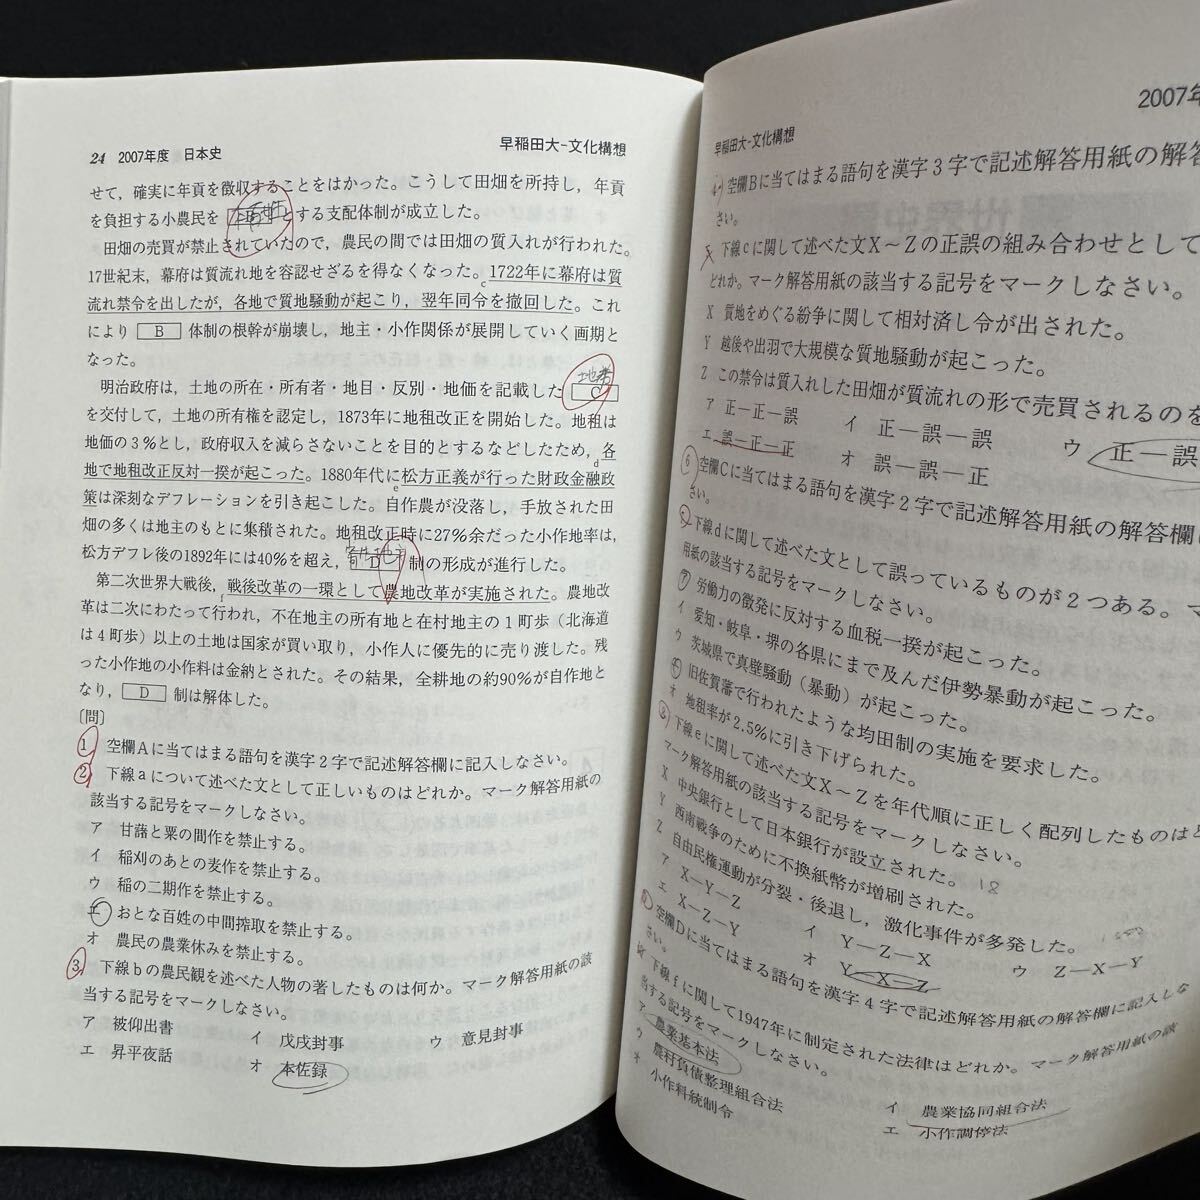 24 2007年度 日本史
早稲田大-文化構想
せて，確実に年貢を徴収することをはかった。こうして田畑を所持し，年貢
を負担する小農民を とする支配体制が成立した。
田畑の売買が禁止されていたので，農民の間では田畑の質入れが行われた。
17世紀末，幕府は質流れ地を容認せざるを得なくなった。c1722年に幕府は質
流れ禁令を出したが，各地で質地騒動が起こり，翌年同令を撤回した。これ
により B 体制の根幹が崩壊し，地主・小作関係が展開していく画期と
なった。
明治政府は，土地の所在・所有者・地目・反別・地価を記載した C
を交付して，土地の所有権を認定し，1873年に地租改正を開始した。地租は
地価の3％とし，政府収入を減らさないことを目的とするなどしたため，d各
地で地租改正反対一揆が起こった。1880年代にe松方正義が行った財政金融政
策は深刻なデフレーションを引き起こした。自作農が没落し，手放された田
畑の多くは地主のもとに集積された。地租改正時に27％余だった小作地率は，
松方デフレ後の1892年には40％を超え， D 制の形成が進行した。
第二次世界大戦後，f戦後改革の一環として農地改革が実施された。農地改
革は二次にわたって行われ，不在地主の所有地と在村地主の1町歩（北海道
は4町歩）以上の土地は国家が買い取り，小作人に優先的に売り渡した。残
った小作地の小作料は金納とされた。その結果，全耕地の約90％が自作地と
なり， D 制は解体した。
〔問〕
1 空欄Aに当てはまる語句を漢字2字で記述解答欄に記入しなさい。
2 下線aについて述べた文として正しいものはどれか。マーク解答用紙の
該当する記号をマークしなさい。
ア 甘藷と粟の間作を禁止する。
イ 稲刈のあとの麦作を禁止する。
ウ 稲の二期作を禁止する。
エ おとな百姓の中間搾取を禁止する。
オ 農民の農業休みを禁止する。
3 下線bの農民観を述べた人物の著したものは何か。マーク解答用紙の該
当する記号をマークしなさい。
ア 被仰出書 イ 戊戌封事 ウ 意見封事
エ 昇平夜話 オ 本佐録
2007年
早稲田大-文化構想
4 空欄Bに当てはまる語句を漢字3字で記述解答用紙の解答
さい。
下線cに関して述べた文X～Zの正誤の組み合わせとして
どれか。マーク解答用紙の該当する記号をマークしなさい。
X 質地をめぐる紛争に関して相対済し令が出された。
Y 越後や出羽で大規模な質地騒動が起こった。
Z この禁令は質入れした田畑が質流れの形で売買されるのを
ア 正―正―誤 イ 正―誤―誤 ウ 正―誤
エ 誤―正―正 オ 誤―誤―正
6 空欄Cに当てはまる語句を漢字2字で記述解答用紙の解答欄に
さい。
下線dに関して述べた文として誤っているものが2つある。マ
用紙の該当する記号をマークしなさい。
ア 労働力の徴発に反対する血税一揆が起こった。
イ 愛知・岐阜・堺の各県にまで及んだ伊勢暴動が起こった。
ウ 茨城県で真壁騒動（暴動）が起こった。
エ 旧佐賀藩で行われたような均田制の実施を要求した。
オ 地租率が2.5％に引き下げられた。
8 下線eに関して述べた文X～Zを年代順に正しく配列したものはど
マーク解答用紙の該当する記号をマークしなさい。
X 中央銀行として日本銀行が設立された。 18
Y 西南戦争のために不換紙幣が増刷された。
Z 自由民権運動が分裂・後退し，激化事件が多発した。
ア X―Y―Z イ Y―Z―X ウ Z―X―Y
エ X―Z―Y オ Y―X―Z
空欄Dに当てはまる語句を漢字4字で記述解答用紙の解答欄に記入しな
さい。
下線fに関して1947年に制定された法律はどれか。マーク解答用紙の該
当する記号をマークしなさい。
ア 農業基本法 イ 農業協同組合法
ウ 農村負債整理組合法 エ 小作調停法
オ 小作料統制令